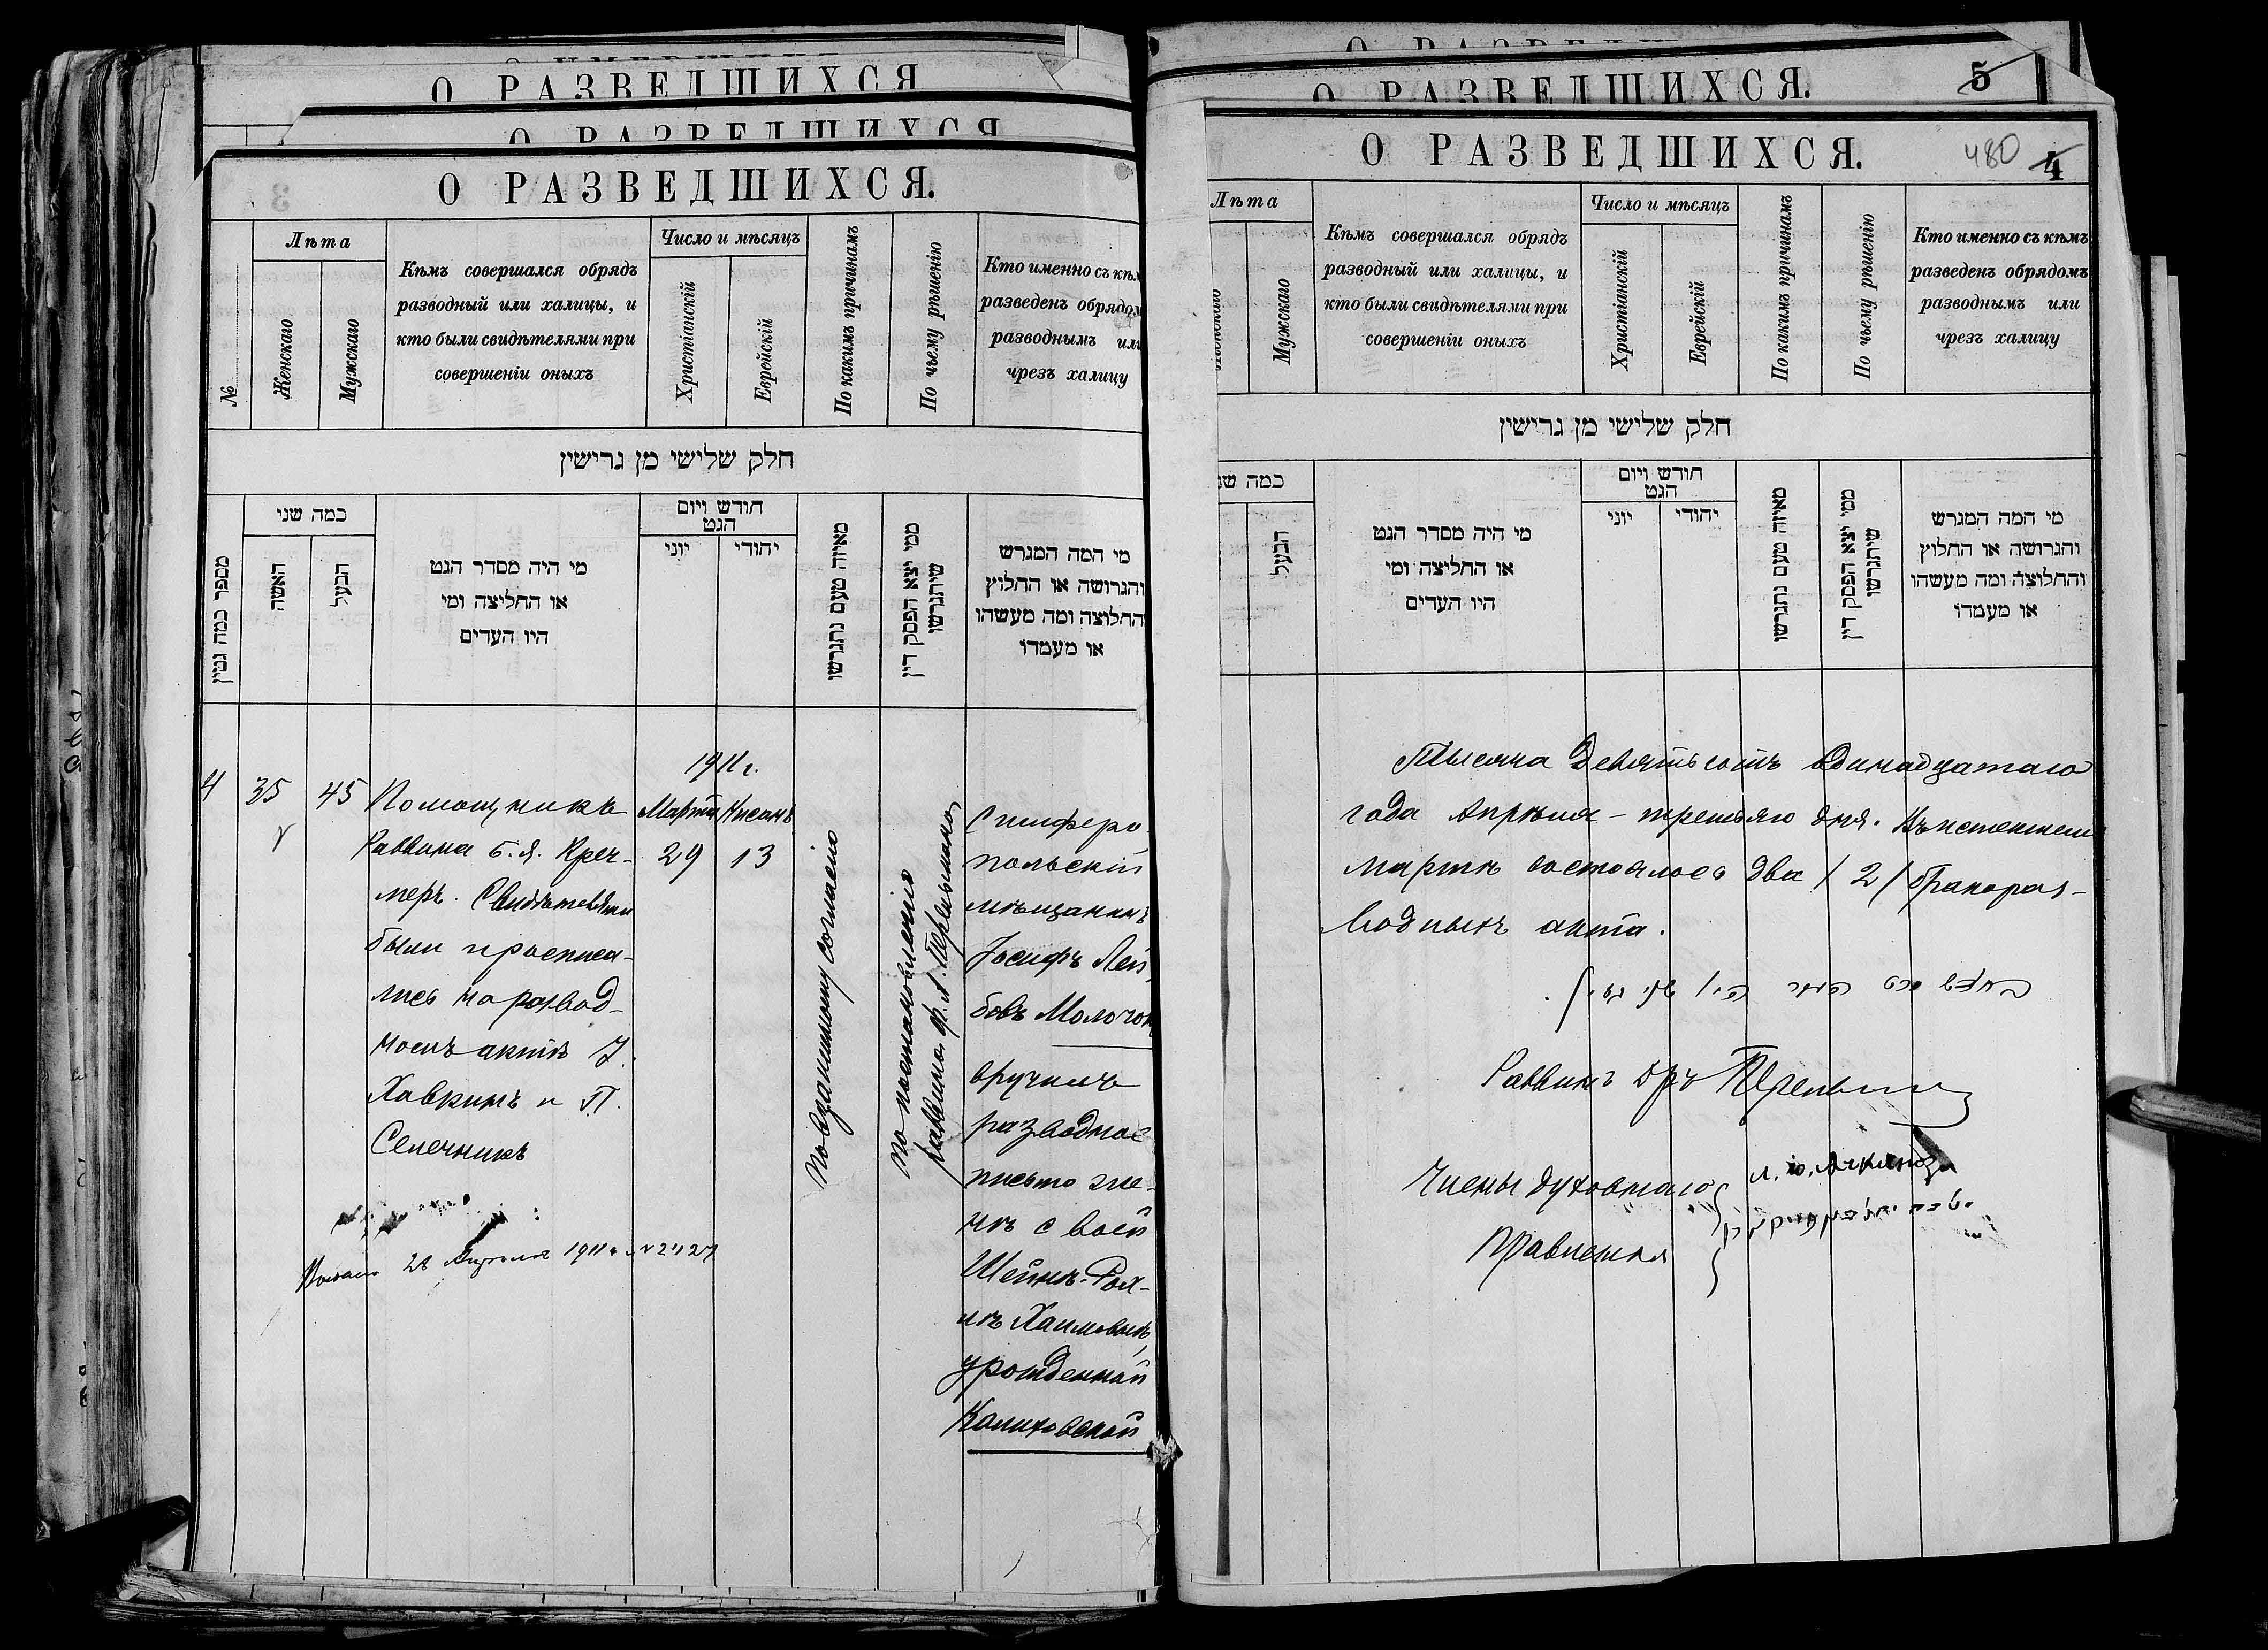 О РАЗВЕДШИХСЯ
О РАЗВЕДШИХСЯ
О РАЗВЕДШИХСЯ.
№
Лѣта
Женскаго
Мужскаго
Кѣмъ совершался обрядъ
разводный или халицы, и
кто были свидѣтелями при
совершеніи оныхъ
Число и мѣсяцъ
Христіанскій
Еврейскій
По какимъ причинамъ
По чьему рѣшенію
Кто именно съ кѣм
разведенъ обрядом
разводнымъ или
чрезъ халицу
חלק שלישי מן גרישין
מספר כמה גטין
כמה שני
האשה
הבעל
מי היה מסדר הגט
או החליצה ומי
היו העדים
חודש ויום
הגט
יוני
יהודי
מאיזה טעם נתגרשו
ממי יצא הפסק דין
שיתגרשו
מי המה המגרש
והגרושה או החלוץ
והחלוצה ומה מעשהו
או מעמדו
4
35
45
Помощникъ
Раввина Б.Я. Креч-
меръ. Свидѣтелями
были и росписа-
лись на развод-
номъ актѣ І.
Хавкинъ и П.
Селечникъ
1911 г.
Марта Нисанъ
29 13
По взаимному согласію
По постановленію
раввина Ф. Л. Перельмана
Симферо-
польскій
мѣщанинъ
Іосифъ Лей-
бовъ Молочон
вручилъ
разводное
письмо же-
нѣ своей
Шейнѣ-Рох-
лѣ Хаимовнѣ,
урожденной
Калиховской
28 Апрѣля 1911 г. №
О РАЗВЕДШИХСЯ.
5
О РАЗВЕДШИХСЯ.
480
4
Лѣта
Мужскаго
Кѣмъ совершался обрядъ
разводный или халицы, и
кто были свидѣтелями при
совершеніи оныхъ
Число и мѣсяцъ
Христіанскій
Еврейскій
По какимъ причинамъ
По чьему рѣшенію
Кто именно съ кѣмъ
разведенъ обрядомъ
разводнымъ или
чрезъ халицу
חלק שלישי מן גרישין
כמה שנ
הבעל
מי היה מסדר הגט
או החליצה ומי
היו העדים
חודש ויום
הגט
יוני
יהודי
מאיזה טעם נתגרשו
ממי יצא הפסק דין
שיתגרשו
מי המה המגרש
והגרושה או החלוץ
והחלוצה ומה מעשהו
או מעמדו
Тысяча девятьсотъ одинадцатаго
года Апрѣля - третьяго дня. Въ истекшемъ
Мартѣ состоялось два /2/ бракораз-
водныхъ акта.
בחדש מרט העבר היו שני גטין.
Раввинъ Д-ръ Перельман
Члены духовнаго
Правленія